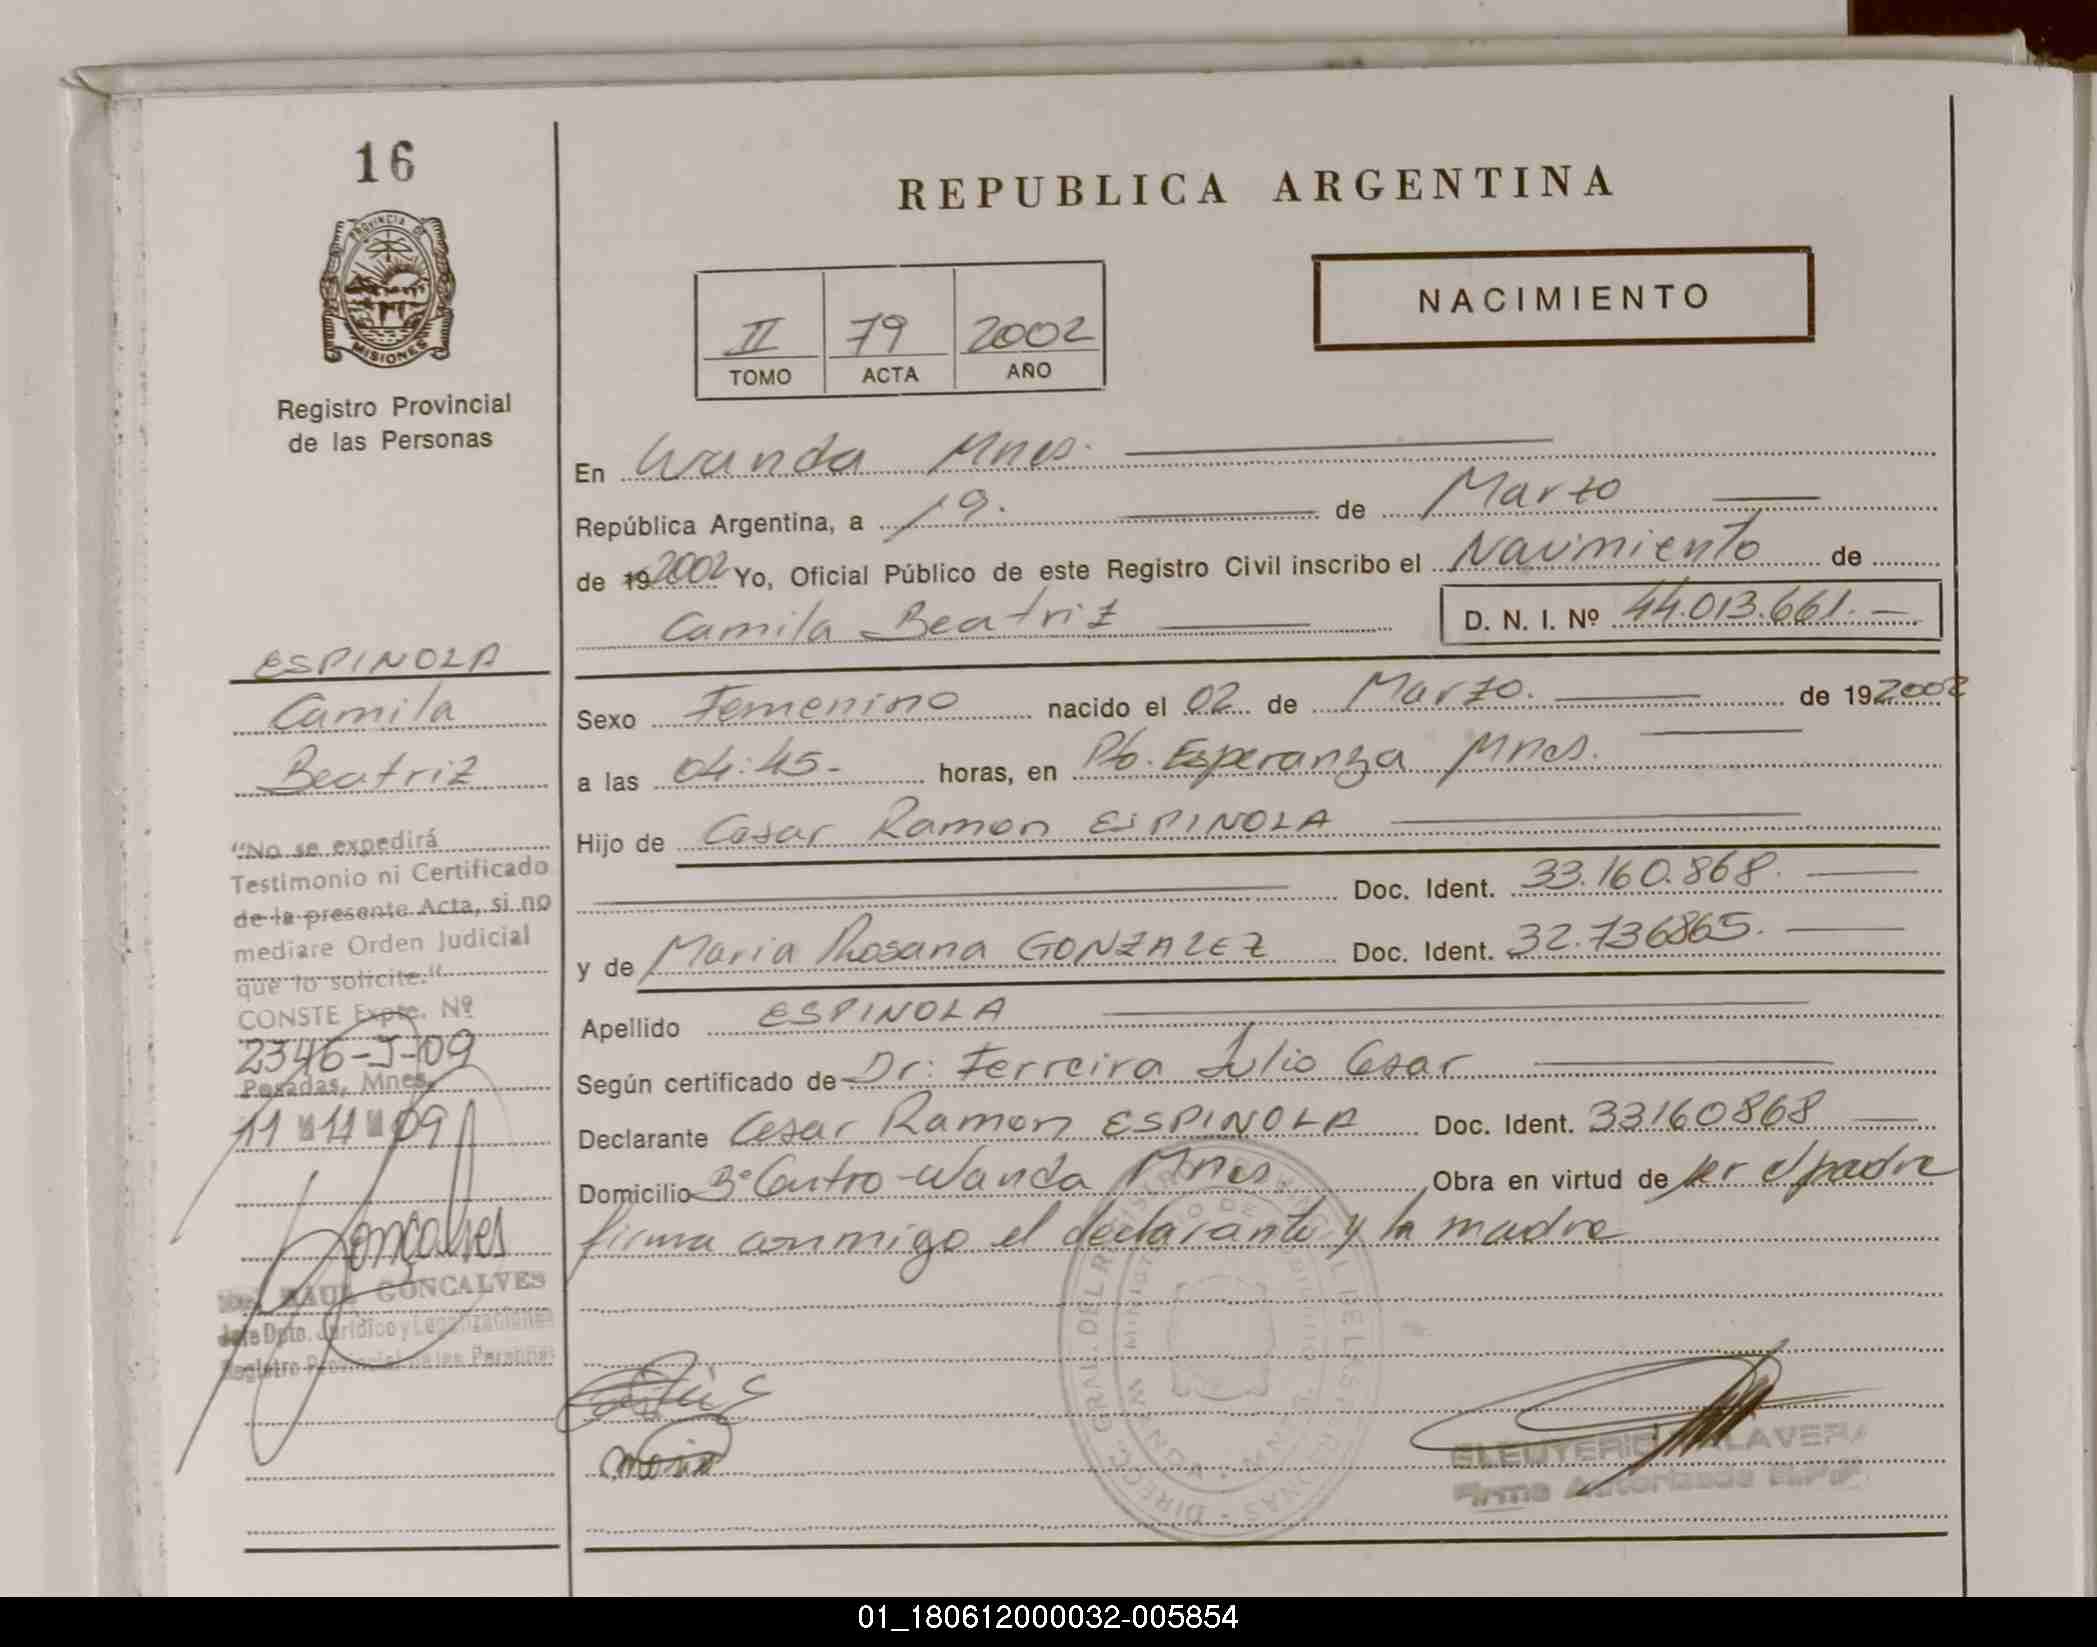 16
PROVINCIA DE
MISIONES
Registro Provincial
de las Personas
ESPINOLA
Camila
Beatriz
"No se expedirá
Testimonio ni Certificado
de la presente Acta, si no
mediare Orden Judicial
que lo solicite."
CONSTE Expte. Nº
2346-J-09
Posadas, Mnes,
11 11 09
Gonçalves
RAUL GONCALVES
Jefe Dpto. Jurídico y Legalizaciones
Registro Provincial de las Personas
REPUBLICA ARGENTINA
II 79 2002
TOMO ACTA AÑO
NACIMIENTO
En Wanda Mnes.
República Argentina, a 19. de Marzo
de 19 2002 Yo, Oficial Público de este Registro Civil inscribo el Nacimiento de
Camila Beatriz D. N. I. Nº 44.013.661.
Sexo Femenino nacido el 02 de Marzo. de 192002
a las 04:45- horas, en Pto. Esperanza Mnes.
Hijo de Cesar Ramon ESPINOLA
Doc. Ident. 33.160.868.
y de Maria Rosana GONZALEZ Doc. Ident. 32.736865.
Apellido ESPINOLA
Según certificado de Dr: Ferreira Julio Cesar
Declarante Cesar Ramon ESPINOLA Doc. Ident. 33160868
Domicilio Bº Centro-Wanda Mnes Obra en virtud de ser el padre
firma conmigo el declarante y la madre
Maria
ELEUTERIO TALAVERA
Firma Autorizada R.P.P.
01_180612000032-005854